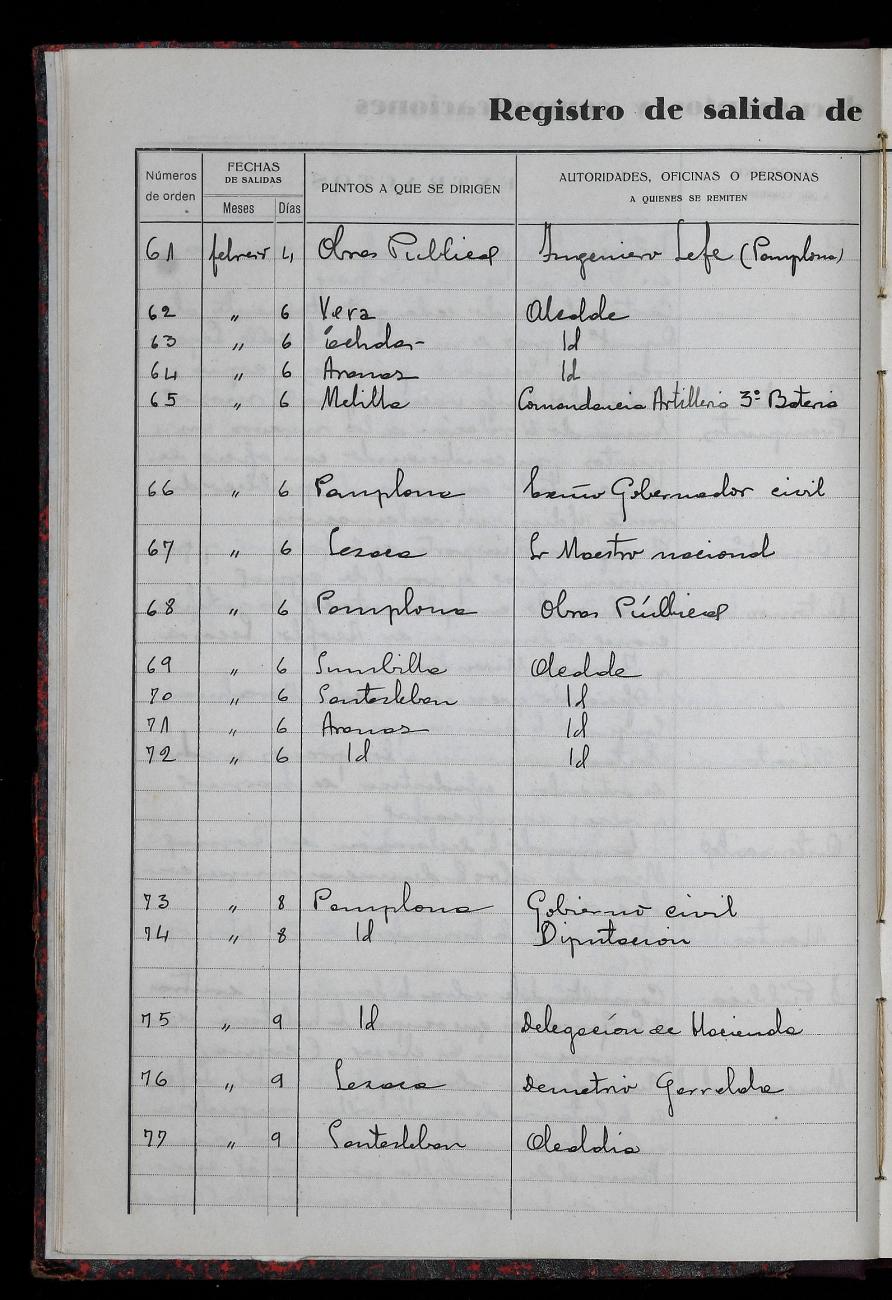 Registro de salida de
Números de orden | FECHAS DE SALIDAS Meses Días | PUNTOS A QUE SE DIRIGEN | AUTORIDADES, OFICINAS O PERSONAS A QUIENES SE REMITEN
61 febrero 4 Obras Publicas Ingeniero Jefe (Pamplona)
62 " 6 Vera Alcalde
63 " 6 Id
64 " 6 Aranaz Id
65 " 6 Melilla Comandancia Artilleria 3ª Bateria
66 " 6 Pamplona Excmo Gobernador civil
67 " 6 Lesaca Sr Maestro nacional
68 " 6 Pamplona Obras Públicas
69 " 6 Sumbilla Alcalde
70 " 6 Santesteban Id
71 " 6 Aranaz Id
72 " 6 Id Id
73 " 8 Pamplona Gobierno civil
74 " 8 Id Diputación
75 " 9 Id Delegación de Hacienda
76 " 9 Lesaca Demetrio
77 " 9 Santesteban Alcaldia